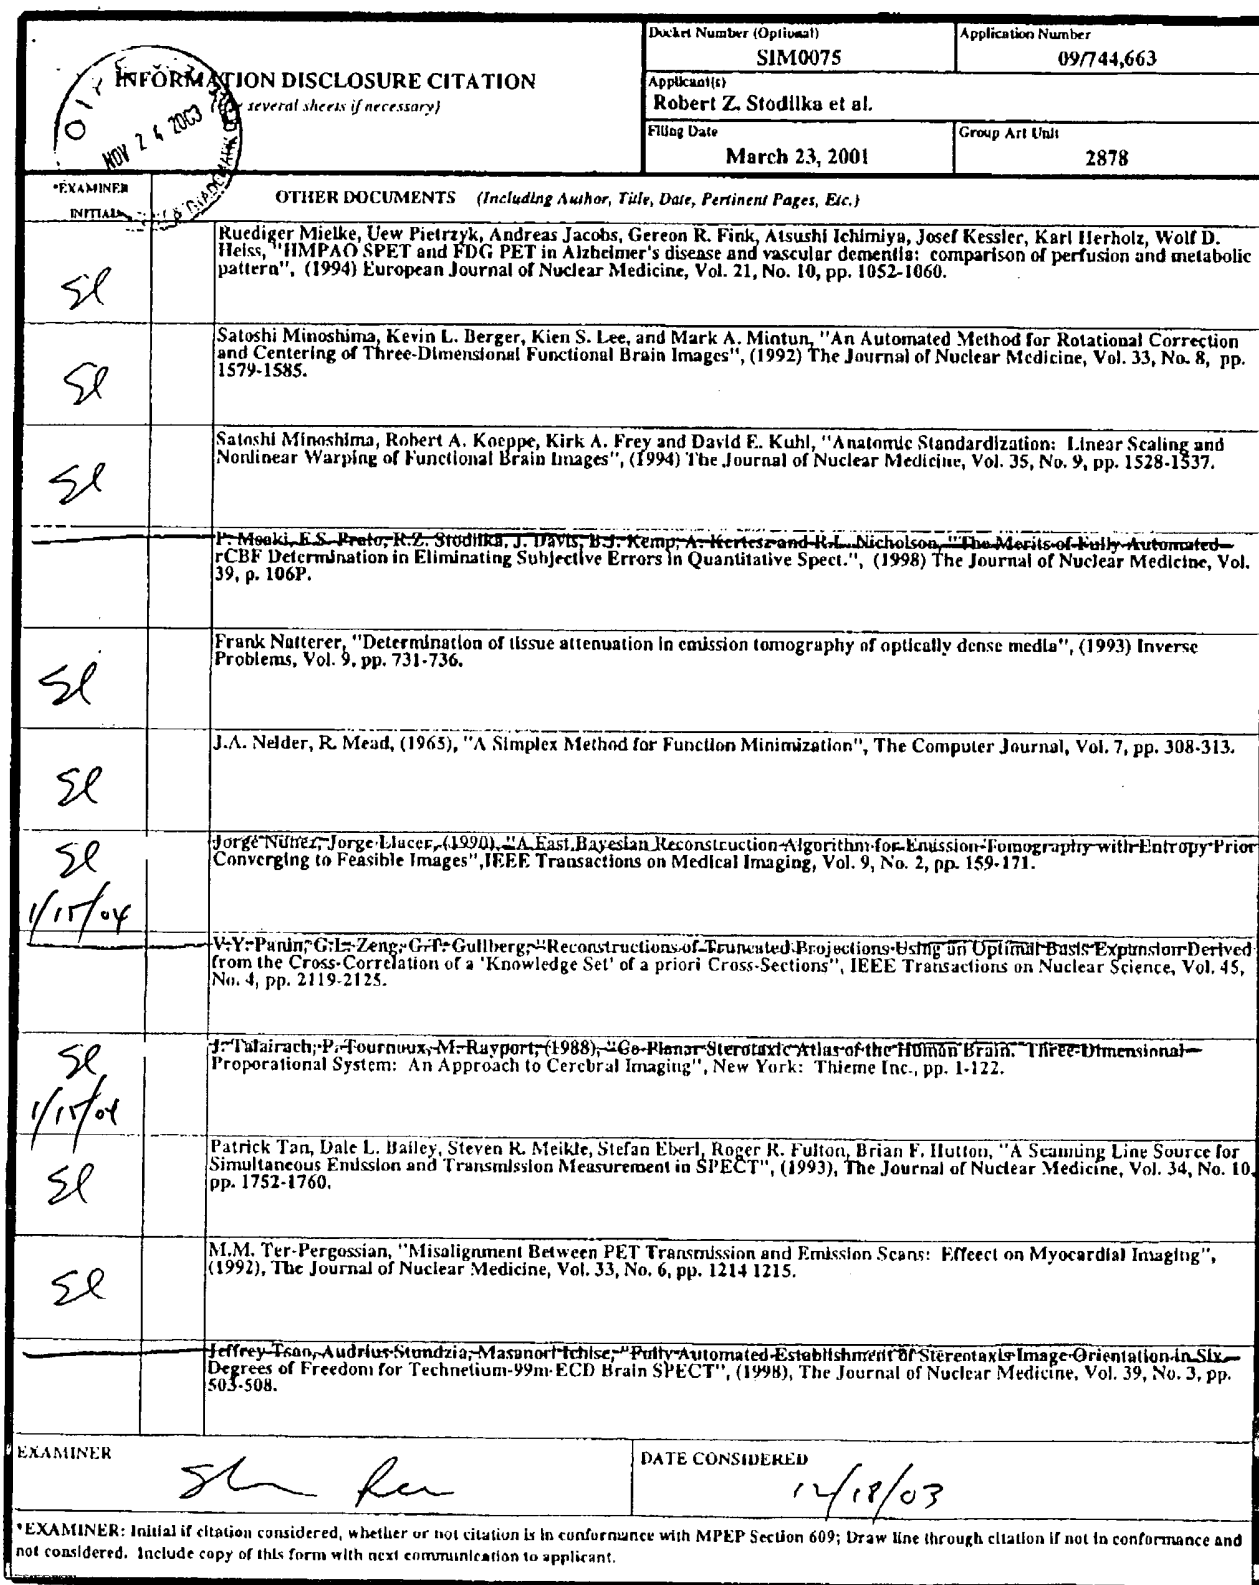 Docket Number (Optional)
SIM0075
Application Number
09/744,663
INFORMATION DISCLOSURE CITATION
several sheets if necessary)
Applicant(s)
Robert Z. Stodilka et al.
Filing Date
March 23, 2001
Group Art Unit
2878
O I P E
NOV 24 2003
*EXAMINER
INITIAL
OTHER DOCUMENTS (Including Author, Title, Date, Pertinent Pages, Etc.)
Ruediger Mielke, Uew Pietrzyk, Andreas Jacobs, Gereon R. Fink, Atsushi Ichimiya, Josef Kessler, Karl Herholz, Wolf D.
Heiss, "HMPAO SPET and FDG PET in Alzheimer's disease and vascular dementia: comparison of perfusion and metabolic
pattern", (1994) European Journal of Nuclear Medicine, Vol. 21, No. 10, pp. 1052-1060.
Sl
Satoshi Minoshima, Kevin L. Berger, Kien S. Lee, and Mark A. Mintun, "An Automated Method for Rotational Correction
and Centering of Three-Dimensional Functional Brain Images", (1992) The Journal of Nuclear Medicine, Vol. 33, No. 8, pp.
1579-1585.
Sl
Satoshi Minoshima, Robert A. Koeppe, Kirk A. Frey and David E. Kuhl, "Anatomic Standardization: Linear Scaling and
Nonlinear Warping of Functional Brain Images", (1994) The Journal of Nuclear Medicine, Vol. 35, No. 9, pp. 1528-1537.
Sl
P. Msaki, E.S. Prato, R.Z. Stodilka, J. Davis, B.J. Kemp, A. Kertesz and R.L. Nicholson, "The Merits of Fully Automated
rCBF Determination in Eliminating Subjective Errors in Quantitative Spect.", (1998) The Journal of Nuclear Medicine, Vol.
39, p. 106P.
Frank Natterer, "Determination of tissue attenuation in emission tomography of optically dense media", (1993) Inverse
Problems, Vol. 9, pp. 731-736.
Sl
J.A. Nelder, R. Mead, (1965), "A Simplex Method for Function Minimization", The Computer Journal, Vol. 7, pp. 308-313.
Sl
Jorge Nunez, Jorge Llacer, (1990), "A Fast Bayesian Reconstruction Algorithm for Emission Tomography with Entropy Prior
Converging to Feasible Images", IEEE Transactions on Medical Imaging, Vol. 9, No. 2, pp. 159-171.
Sl
1/15/04
V.Y. Panin, G.L. Zeng, G.T. Gullberg, "Reconstructions of Truncated Projections Using an Optimal Basis Expansion Derived
from the Cross-Correlation of a 'Knowledge Set' of a priori Cross-Sections", IEEE Transactions on Nuclear Science, Vol. 45,
No. 4, pp. 2119-2125.
J. Talairach, P. Tournoux, M. Rayport, (1988), "Co-Planar Sterotaxic Atlas of the Human Brain. Three-Dimensional
Proporational System: An Approach to Cerebral Imaging", New York: Thieme Inc., pp. 1-122.
Sl
1/15/04
Patrick Tan, Dale L. Bailey, Steven R. Meikle, Stefan Eberl, Roger R. Fulton, Brian F. Hutton, "A Scanning Line Source for
Simultaneous Emission and Transmission Measurement in SPECT", (1993), The Journal of Nuclear Medicine, Vol. 34, No. 10,
pp. 1752-1760.
Sl
M.M. Ter-Pergossian, "Misalignment Between PET Transmission and Emission Scans: Effeect on Myocardial Imaging",
(1992), The Journal of Nuclear Medicine, Vol. 33, No. 6, pp. 1214 1215.
Sl
Jeffrey Tsao, Audrius Stundzia, Masanori Ichise, "Fully Automated Establishment of Sterentaxis Image Orientation in Six
Degrees of Freedom for Technetium-99m-ECD Brain SPECT", (1998), The Journal of Nuclear Medicine, Vol. 39, No. 3, pp.
503-508.
EXAMINER
DATE CONSIDERED
12/18/03
*EXAMINER: Initial if citation considered, whether or not citation is in conformance with MPEP Section 609; Draw line through citation if not in conformance and
not considered. Include copy of this form with next communication to applicant.